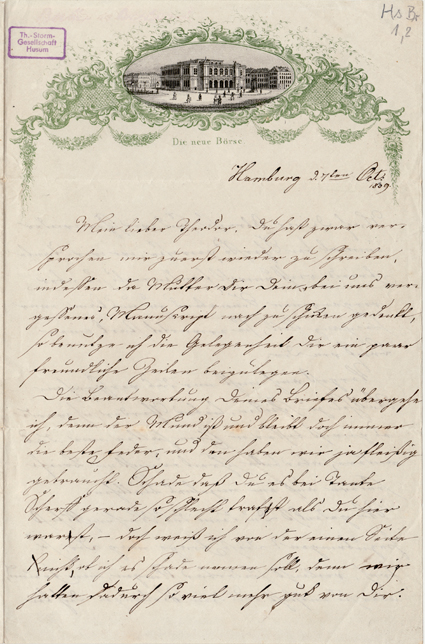 Th.-Storm-
Gesellschaft
Husum
Hs Br
1,2
Die neue Börse
Hamburg d. 7ten Oct.
1839
Mein lieber Theodor. Du hast zwar ver-
sprochen mir zuerst wieder zu schreiben,
indessen da Mutter Dir Dein, bei uns ver-
gessenes, Manuscript nach zu schicken gedenkt,
so benutze ich die Gelegenheit Dir ein paar
freundliche Zeilen beizulegen.
Die Beantwortung Deines Briefes übergehe
ich, denn der Mund ist und bleibt doch immer
die beste Feder, und den haben wir ja fleißig
gebraucht. Schade daß Du es bei Tante
Scherff gerade so schlecht trafst als Du hier
warst, – doch weiß ich von der einen Seite
nicht, ob ich es schade nennen soll, denn wir
hatten dadurch so viel mehr gut von Dir.